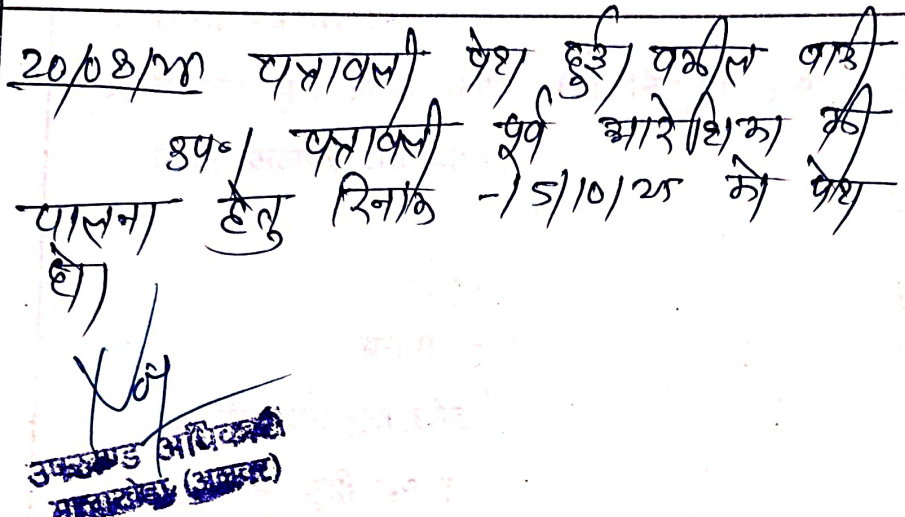 20/08/25 पत्रावली पेश हुई। वकील वादी
उप०। पत्रावली पूर्व आदेशिका की
पालना हेतु दिनांक - 15/10/25 को पेश
हो।
उपखण्ड अधिकारी
मालाखेड़ा (अलवर)